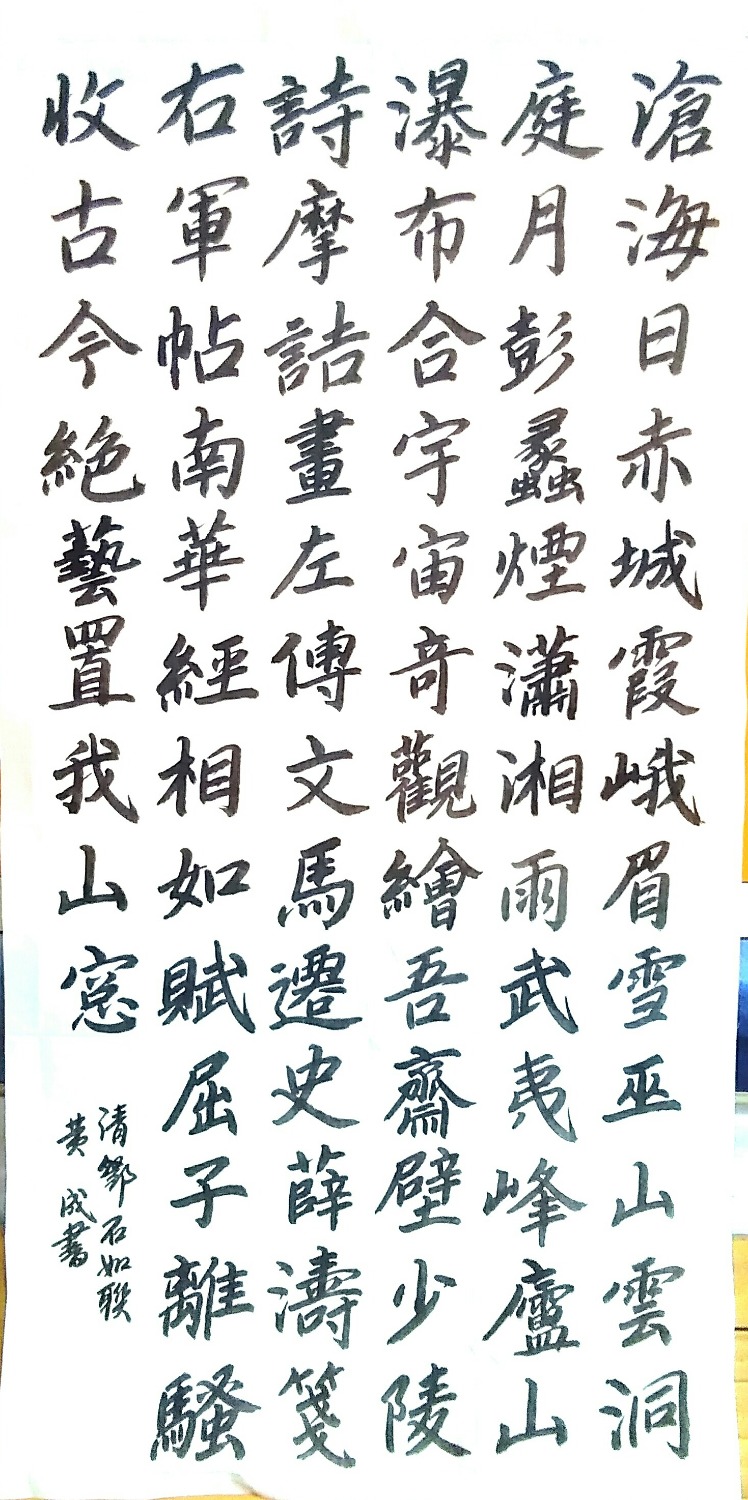 滄海日赤城霞峨眉雪巫山雲洞
庭月彭蠡煙瀟湘雨武夷峰廬山
瀑布合宇宙奇觀繪吾齋壁少陵
詩摩詰畫左傳文馬遷史薛濤箋
右軍帖南華經相如賦屈子離騷
收古今絕藝置我山窓
清鄧石如聯
黃成書